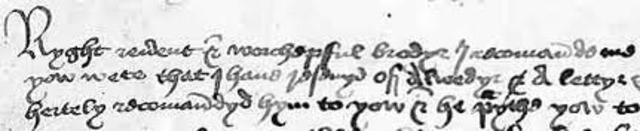 Ryght reuent & worchepful brodyr I recomaund me
yow wete that I haue reseyuyd of Alwedyr & A lettyr
hertely recomaundyd hym to yow & he p'ythe yow to